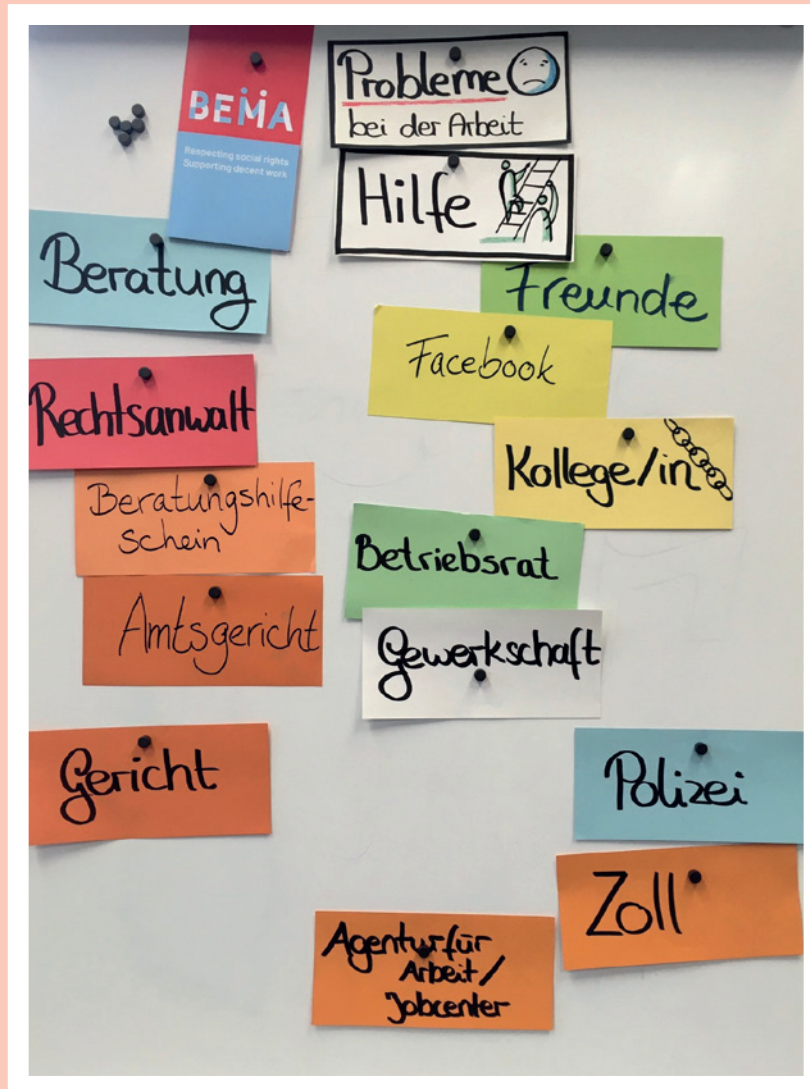 BEMA
Respecting social rights
Supporting decent work
Probleme
bei der Arbeit
Hilfe
Beratung
Freunde
Facebook
Rechtsanwalt
Kollege/in
Beratungshilfe-
schein
Betriebsrat
Amtsgericht
Gewerkschaft
Gericht
Polizei
Zoll
Agentur für
Arbeit/
Jobcenter